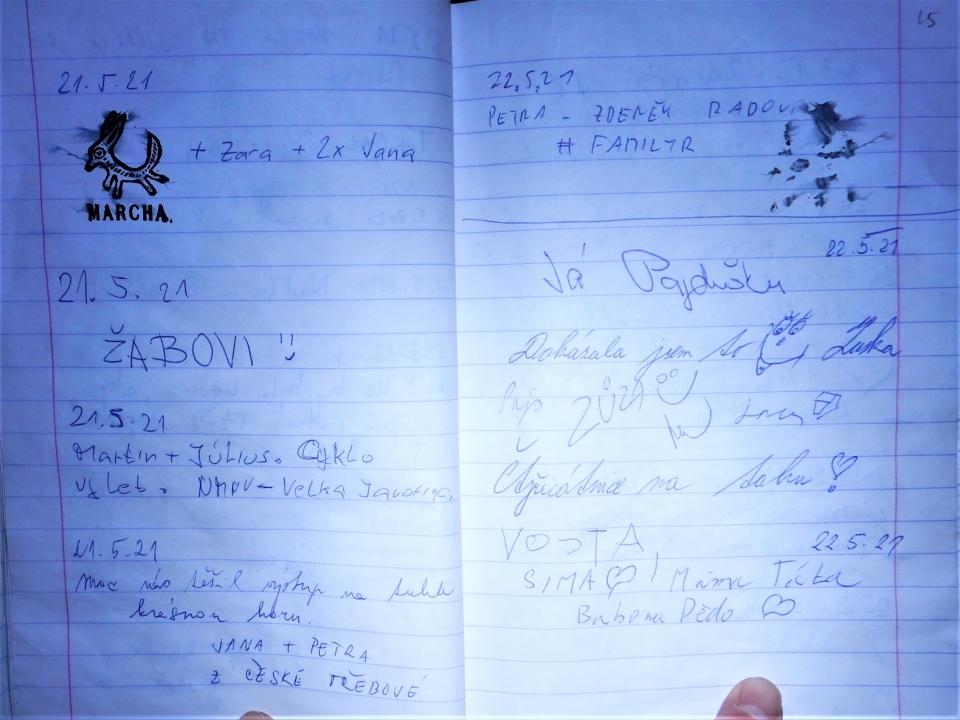 21.5.21
+ Zara + 2x Jana
MARCHA.
21.5.21
ŽABOVI
21.5.21
Martin + Július. Cyklo
výlet. NMNV - Velká Javorina.
21.5.21
Moc nás těšil výstup na tuhle
krásnou horu.
JANA + PETRA
Z ČESKÉ TŘEBOVÉ
15
22.5.21
PETRA - ZDENĚK RADOV
# FAMILYR
22.5.21
Já
Dokázala jsem to Zuzka
na
VOJTA,
22.5.21
SIMA Máma Táta
Babena Dědo